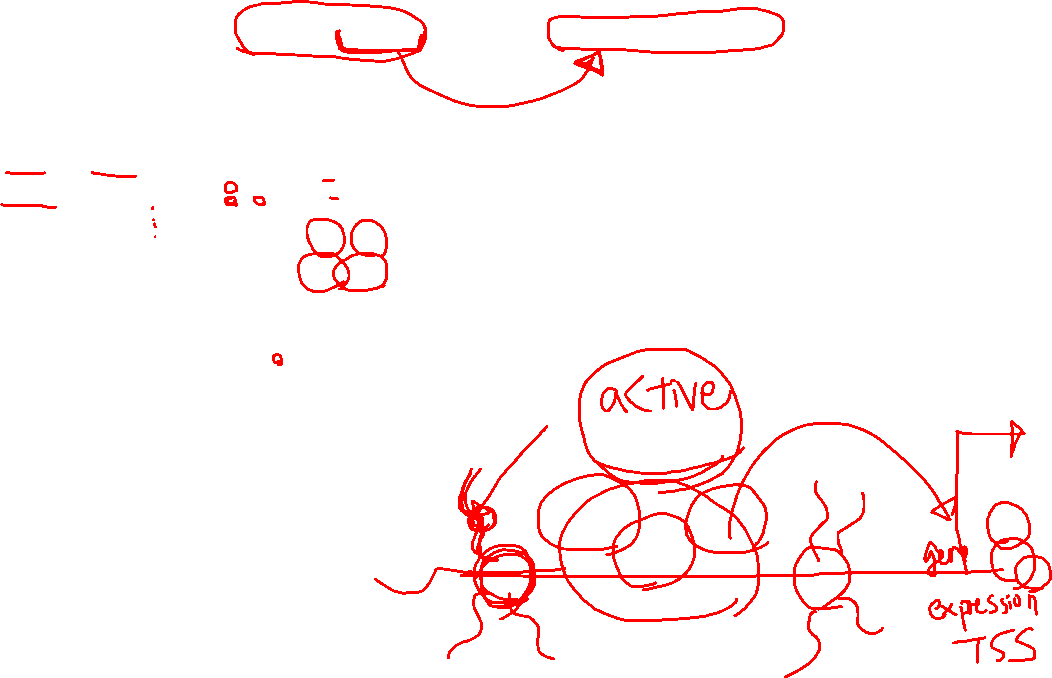 active
gene
expression
TSS